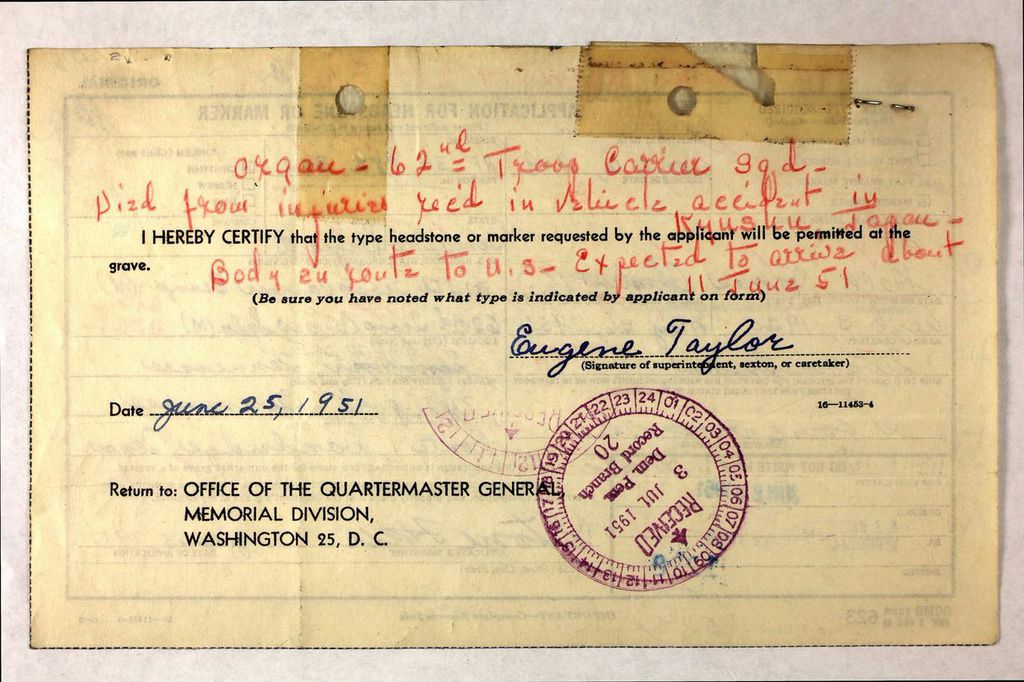 Organ - 62nd Troop Carrier Sqd -
Died from injuries rec'd in vehicle accident in
Kyushu, Japan -
I HEREBY CERTIFY that the type headstone or marker requested by the applicant will be permitted at the
grave.
Body en route to U.S - Expected to arrive about
11 June 51
(Be sure you have noted what type is indicated by applicant on form)
Eugene Taylor
(Signature of superintendent, sexton, or caretaker)
Date June 25, 1951
16—11453-4
Return to: OFFICE OF THE QUARTERMASTER GENERAL,
MEMORIAL DIVISION,
WASHINGTON 25, D. C.
RECEIVED
3 JUL 1951
20
Dem. Pers.
Record Branch
01 02 03 04 05 06 07 08 09 10 11 12 13 14 15 16 17 18 19 20 21 22 23 24